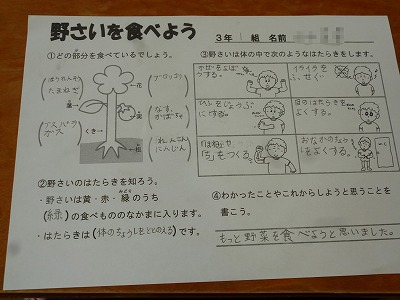 野さいを食べよう
3年 組 名前
①どの部分を食べているでしょう。
ほうれんそう
たまねぎ
葉
アスパラ
ガス
くき
花
ブロッコリ
実
なす
かぼちゃ
根
れんこん
にんじん
②野さいのはたらきを知ろう。
・野さいは黄・赤・緑のうち
みどり
(緑)の食べもののなかまに入ります。
・はたらきは(体のちょうしをととのえる)です。
③野さいは体の中で次のようなはたらきをします。
かぜをよぼう
する。
イライラ
をふせぐ
じょうぶ
にする。
目のはたらきを
よくする。
をつくる。
おなかのちょうし
をよくする。
④わかったことやこれからしようと思うことを
書こう。
もっと野菜を食べようと思いました。